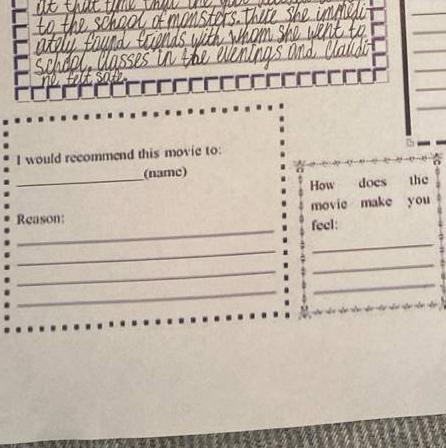 at that time that the
to the school of monsters. There she immedi-
ately found friends with whom she went to
school, classes in the evenings and Claudi-
ne felt safe.
I would recommend this movie to:
(name)
Reason:
How does the
movie make you
feel: